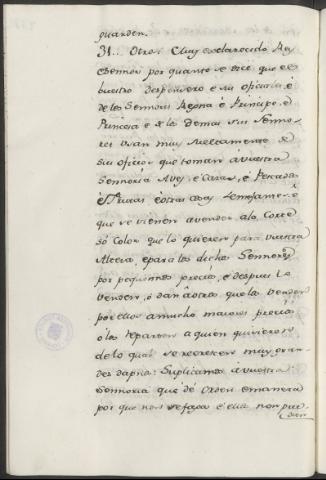 guarden.
31.. Otrosi Muy esclarecido Rey
é Sennor por quanto se dice que el
buestro despensero e su oficial é
de los Sennores Reyna é Principe é
Princesa é de la demas sus Senno-
res usan muy sueltamente de
sus oficios que toman á vuestra
Sennoria Aves é Cazas, é Pescados
é Frutas é otras cosas semejantes
que se vienen a vender a la Corte
só color que lo quieren para vuestra
Alteza, é para los dichos Sennores
por pequennos precios, é despues lo
venden, ó dan á otros que la venden
por ellos a mucho maiores precios
ó las reparten a quien quisieren
de lo qual se recrescen muy gran-
des dapnos: Suplicamos a vuestra
Sennoria que dé orden é manera
por que non se faga é ella non pue-
dan